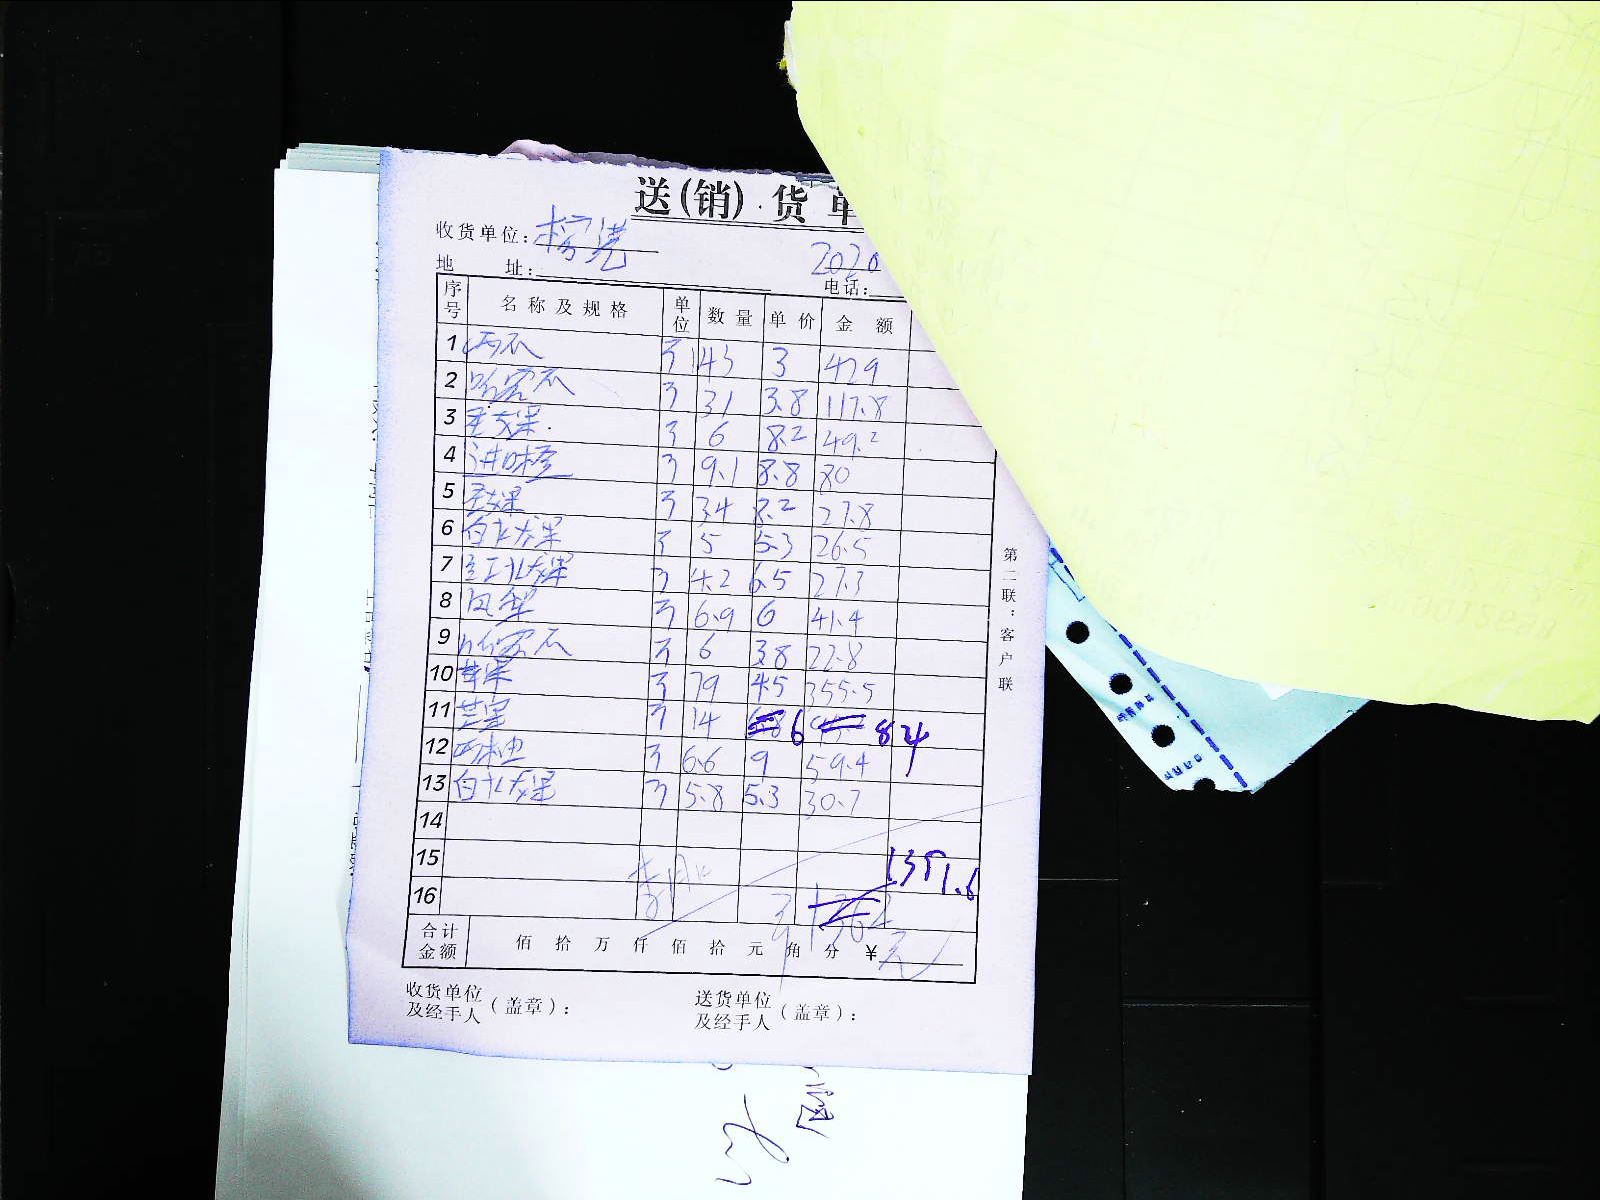 送(销)货单
收货单位:
2020
地 址: 电话:
序号 名称及规格 单位 数量 单价 金额
1 西瓜 斤 143 3 429
2 哈密瓜 斤 31 3.8 117.8
3 斤 6 8.2 49.2
4 斤 9.1 8.8 80
5 斤 3.4 8.2 27.8
6 白火龙果 斤 5 5.3 26.5
7 红火龙果 斤 4.2 6.5 27.3
8 凤梨 斤 6.9 6 41.4
9 哈密瓜 斤 6 3.8 22.8
10 苹果 斤 79 4.5 355.5
11 斤 14 6 84
12 西柚 斤 6.6 9 59.4
13 白火龙果 斤 5.8 5.3 30.7
14
15 1351.6
16
合计金额 佰 拾 万 仟 佰 拾 元 角 分 ¥
收货单位及经手人(盖章):
送货单位及经手人(盖章):
第二联:客户联